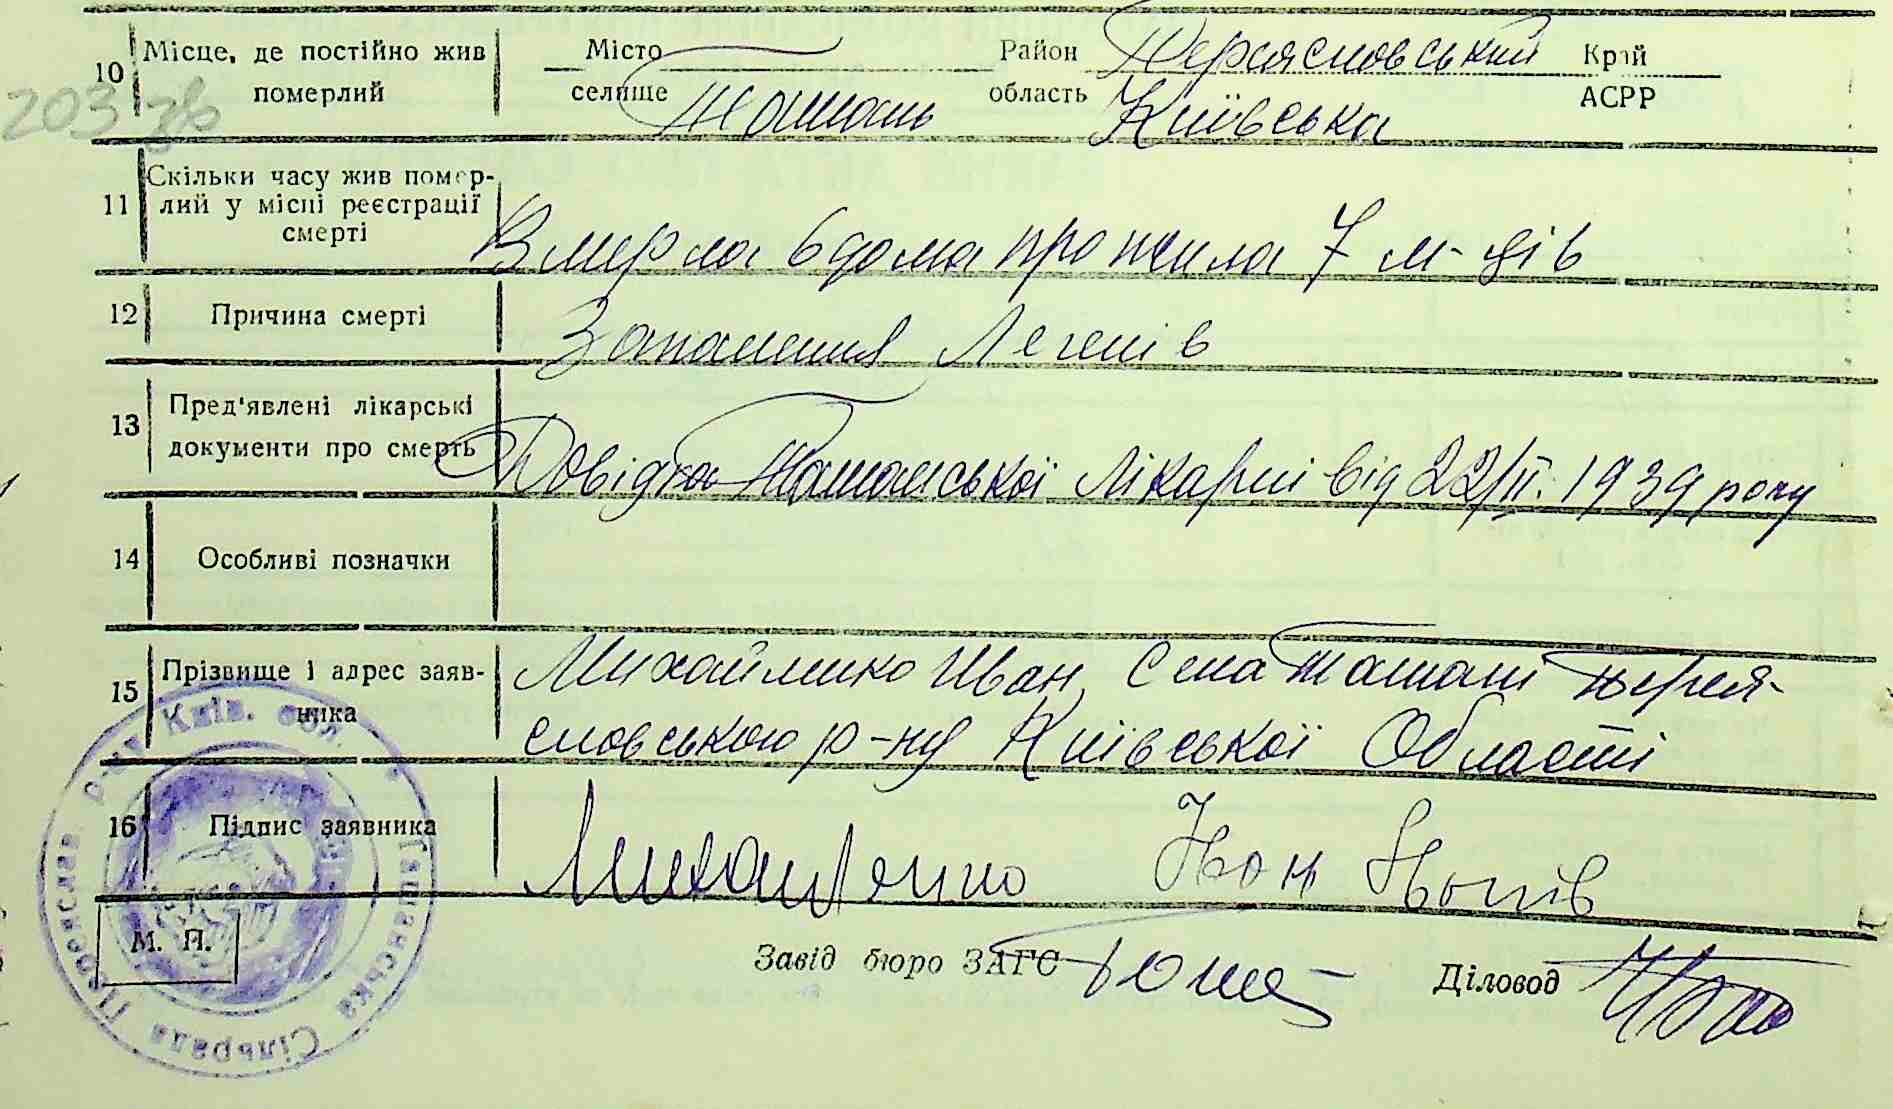 10 Місце, де постійно жив Місто Район Переясловський Край
203 зв померлий селище Ташань область Київська АСРР
Скільки часу жив помер-
11 лий у місці реєстрації
смерті
Вмерла вдома прожила 7 м-ців
12 Причина смерті Запалення Легенів
13 Пред'явлені лікарські
документи про смерть Довідка Ташанської лікарні від 22/II. 1939 року
14 Особливі позначки
15 Прізвище і адрес заяв- Михайленко Иван Села Ташані перея-
ника словського р-ну Київської Області
16 Підпис заявника Михайленко
М. П.
Завід бюро ЗАГС Діловод
Ташанська Сільрада Переяслав. р-ну Київ. обл.